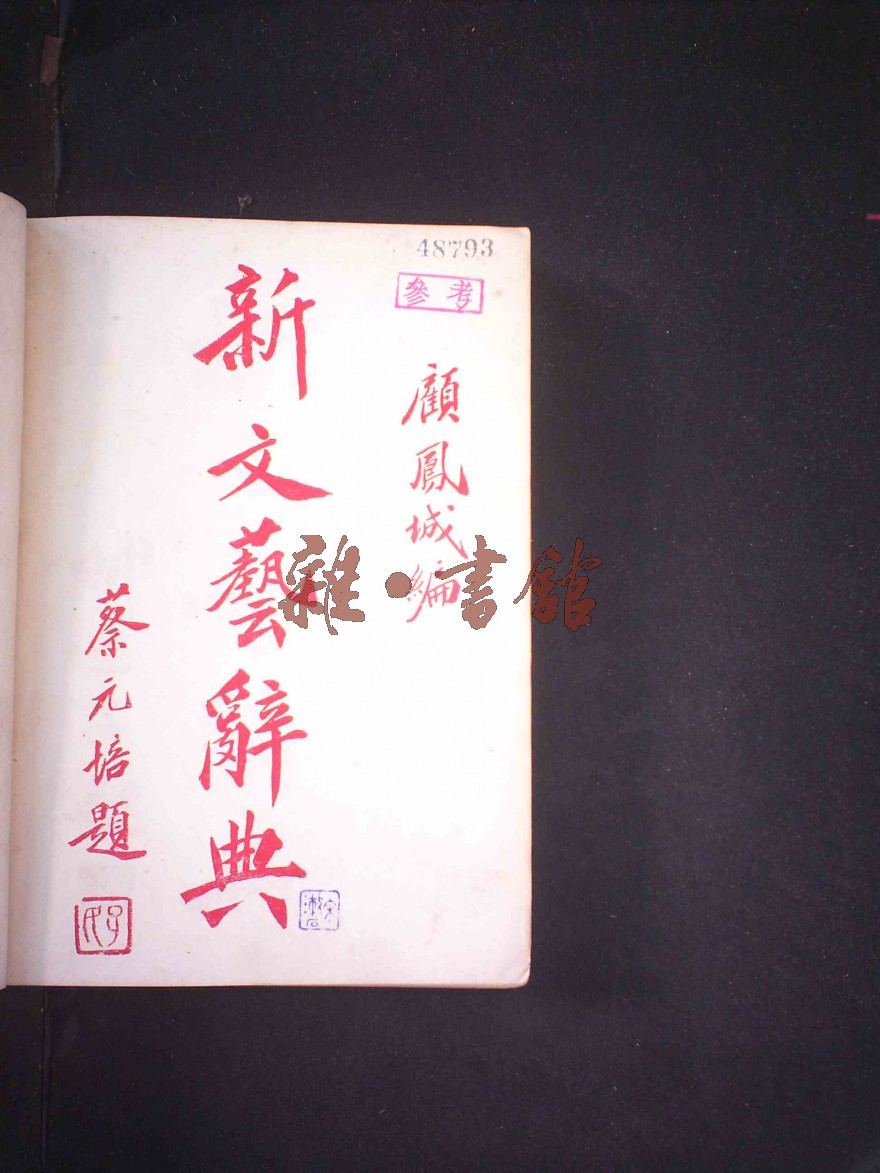 48793
參考
顧鳳城編
新文藝辭典
蔡元培題
雜·書館